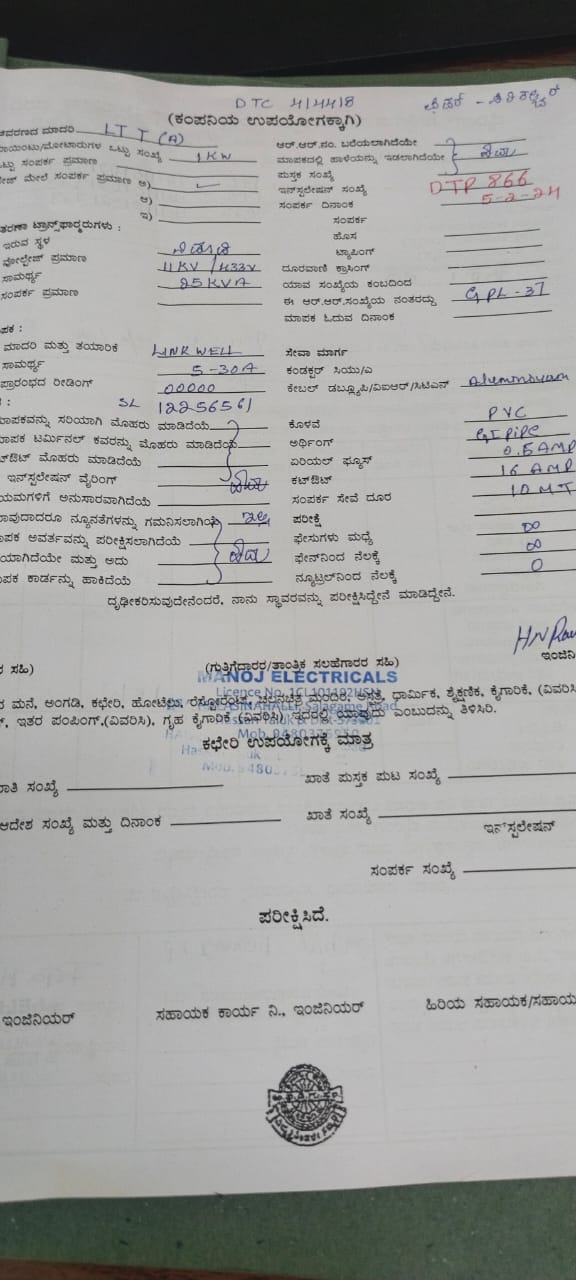 DTC 4/44/8
(ಕಂಪನಿಯ ಉಪಯೋಗಕ್ಕಾಗಿ)
ಆವರಣದ ಮಾದರಿ LT T (A)
ಆರ್.ಆರ್.ನಂ. ಬರೆಯಲಾಗಿದೆಯೇ
ರಾಯಿಂಟು/ಮೋಟಾರುಗಳ ಒಟ್ಟು ಸಂಖ್ಯೆ 1KW
ಮಾಪಕದಲ್ಲಿ ಹಾಳೆಯನ್ನು ಇಡಲಾಗಿದೆಯೇ
ಒಟ್ಟು ಸಂಪರ್ಕ ಪ್ರಮಾಣ
ಪುಸ್ತಕ ಸಂಖ್ಯೆ
ಮೇಲೆ ಸಂಪರ್ಕ ಪ್ರಮಾಣ ಅ)
ಇನ್ಸ್ಟಲೇಷನ್ ಸಂಖ್ಯೆ DTP 866
ಆ)
ಸಂಪರ್ಕ ದಿನಾಂಕ 5-2-24
ಇ)
ಸಂಪರ್ಕ
ತರಣಾ ಟ್ರಾನ್ಸ್‌ಫಾರ್ಮರುಗಳು :
ಹೊಸ
ಇರುವ ಸ್ಥಳ
ಟ್ಯಾಪಿಂಗ್
ವೋಲ್ಟೇಜ್ ಪ್ರಮಾಣ 11KV /433V
ದೂರವಾಣಿ ಕ್ರಾಸಿಂಗ್
ಸಾಮರ್ಥ್ಯ 25KVA
ಯಾವ ಸಂಖ್ಯೆಯ ಕಂಬದಿಂದ
ಸಂಪರ್ಕ ಪ್ರಮಾಣ
ಈ ಆರ್.ಆರ್.ಸಂಖ್ಯೆಯ ನಂತರದ್ದು GPL-37
ಮಾಪಕ ಓದುವ ದಿನಾಂಕ
ಪಕ :
ಮಾದರಿ ಮತ್ತು ತಯಾರಿಕೆ LINKWELL
ಸೇವಾ ಮಾರ್ಗ
ಸಾಮರ್ಥ್ಯ 5-30A
ಕಂಡಕ್ಟರ್ ಸಿಯು/ಎ
ಪ್ರಾರಂಭದ ರೀಡಿಂಗ್ 00000
ಕೇಬಲ್ ಡಬ್ಲ್ಯೂಪಿ/ವಿಐಆರ್/ಸಿಟಿಎಸ್
SL 12256561
ಮಾಪಕವನ್ನು ಸರಿಯಾಗಿ ಮೊಹರು ಮಾಡಿದೆಯೆ
ಕೊಳವೆ PVC
ಮಾಪಕ ಟರ್ಮಿನಲ್ ಕವರನ್ನು ಮೊಹರು ಮಾಡಿದೆಯೆ
ಅರ್ಥಿಂಗ್ GI PIPE
ಕಟ್‌ಔಟ್ ಮೊಹರು ಮಾಡಿದೆಯೆ
ಏರಿಯಲ್ ಫ್ಯೂಸ್ 0.5 AMP
ಇನ್‌ಸ್ಟಲೇಷನ್ ವೈರಿಂಗ್
ಕಟ್‌ಔಟ್ 16 AMP
ಯಮಗಳಿಗೆ ಅನುಸಾರವಾಗಿದೆಯೆ
ಸಂಪರ್ಕ ಸೇವೆ ದೂರ 10 MT
ಯಾವುದಾದರೂ ನ್ಯೂನತೆಗಳನ್ನು ಗಮನಿಸಲಾಗಿಯೆ ಇಲ್ಲ
ಪರೀಕ್ಷೆ
ಮಾಪಕ ಅವರ್ತವನ್ನು ಪರೀಕ್ಷಿಸಲಾಗಿದೆಯೆ
ಫೇಸುಗಳು ಮಧ್ಯೆ ∞
ಯಾಗಿದೆಯೇ ಮತ್ತು ಅದು
ಫೇಸ್‌ನಿಂದ ನೆಲಕ್ಕೆ ∞
ಮಾಪಕ ಕಾರ್ಡನ್ನು ಹಾಕಿದೆಯೆ
ನ್ಯೂಟ್ರಲ್‌ನಿಂದ ನೆಲಕ್ಕೆ 0
ದೃಢೀಕರಿಸುವುದೇನೆಂದರೆ, ನಾನು ಸ್ಥಾವರವನ್ನು ಪರೀಕ್ಷಿಸಿದ್ದೇನೆ ಮಾಡಿದ್ದೇನೆ.
ರ ಸಹಿ)
(ಗುತ್ತಿಗೆದಾರರ/ತಾಂತ್ರಿಕ ಸಲಹೆಗಾರರ ಸಹಿ)
ಇಂಜಿನಿ
MANOJ ELECTRICALS
ರ ಮನೆ, ಅಂಗಡಿ, ಕಛೇರಿ, ಹೋಟೆಲು, ರೆಸ್ಟೋರೆಂಟ್, ಚಲನಚಿತ್ರ ಮಂದಿರ, ಆಸ್ಪತ್ರೆ, ಧಾರ್ಮಿಕ, ಶೈಕ್ಷಣಿಕ, ಕೈಗಾರಿಕೆ, (ವಿವರಿಸಿ
ಇತರ ಪಂಪಿಂಗ್,(ವಿವರಿಸಿ), ಗೃಹ ಕೈಗಾರಿಕೆ (ವಿವರಿಸಿ) ಇದರಲ್ಲಿ ಯಾವುದು ಎಂಬುದನ್ನು ತಿಳಿಸಿರಿ.
ಕಛೇರಿ ಉಪಯೋಗಕ್ಕೆ ಮಾತ್ರ
ರಾತಿ ಸಂಖ್ಯೆ
ಖಾತೆ ಪುಸ್ತಕ ಪುಟ ಸಂಖ್ಯೆ
ಆದೇಶ ಸಂಖ್ಯೆ ಮತ್ತು ದಿನಾಂಕ
ಖಾತೆ ಸಂಖ್ಯೆ
ಇನ್‌ಸ್ಟಲೇಷನ್
ಸಂಪರ್ಕ ಸಂಖ್ಯೆ
ಪರೀಕ್ಷಿಸಿದೆ.
ಇಂಜಿನಿಯರ್
ಸಹಾಯಕ ಕಾರ್ಯ ನಿ., ಇಂಜಿನಿಯರ್
ಹಿರಿಯ ಸಹಾಯಕ/ಸಹಾಯ